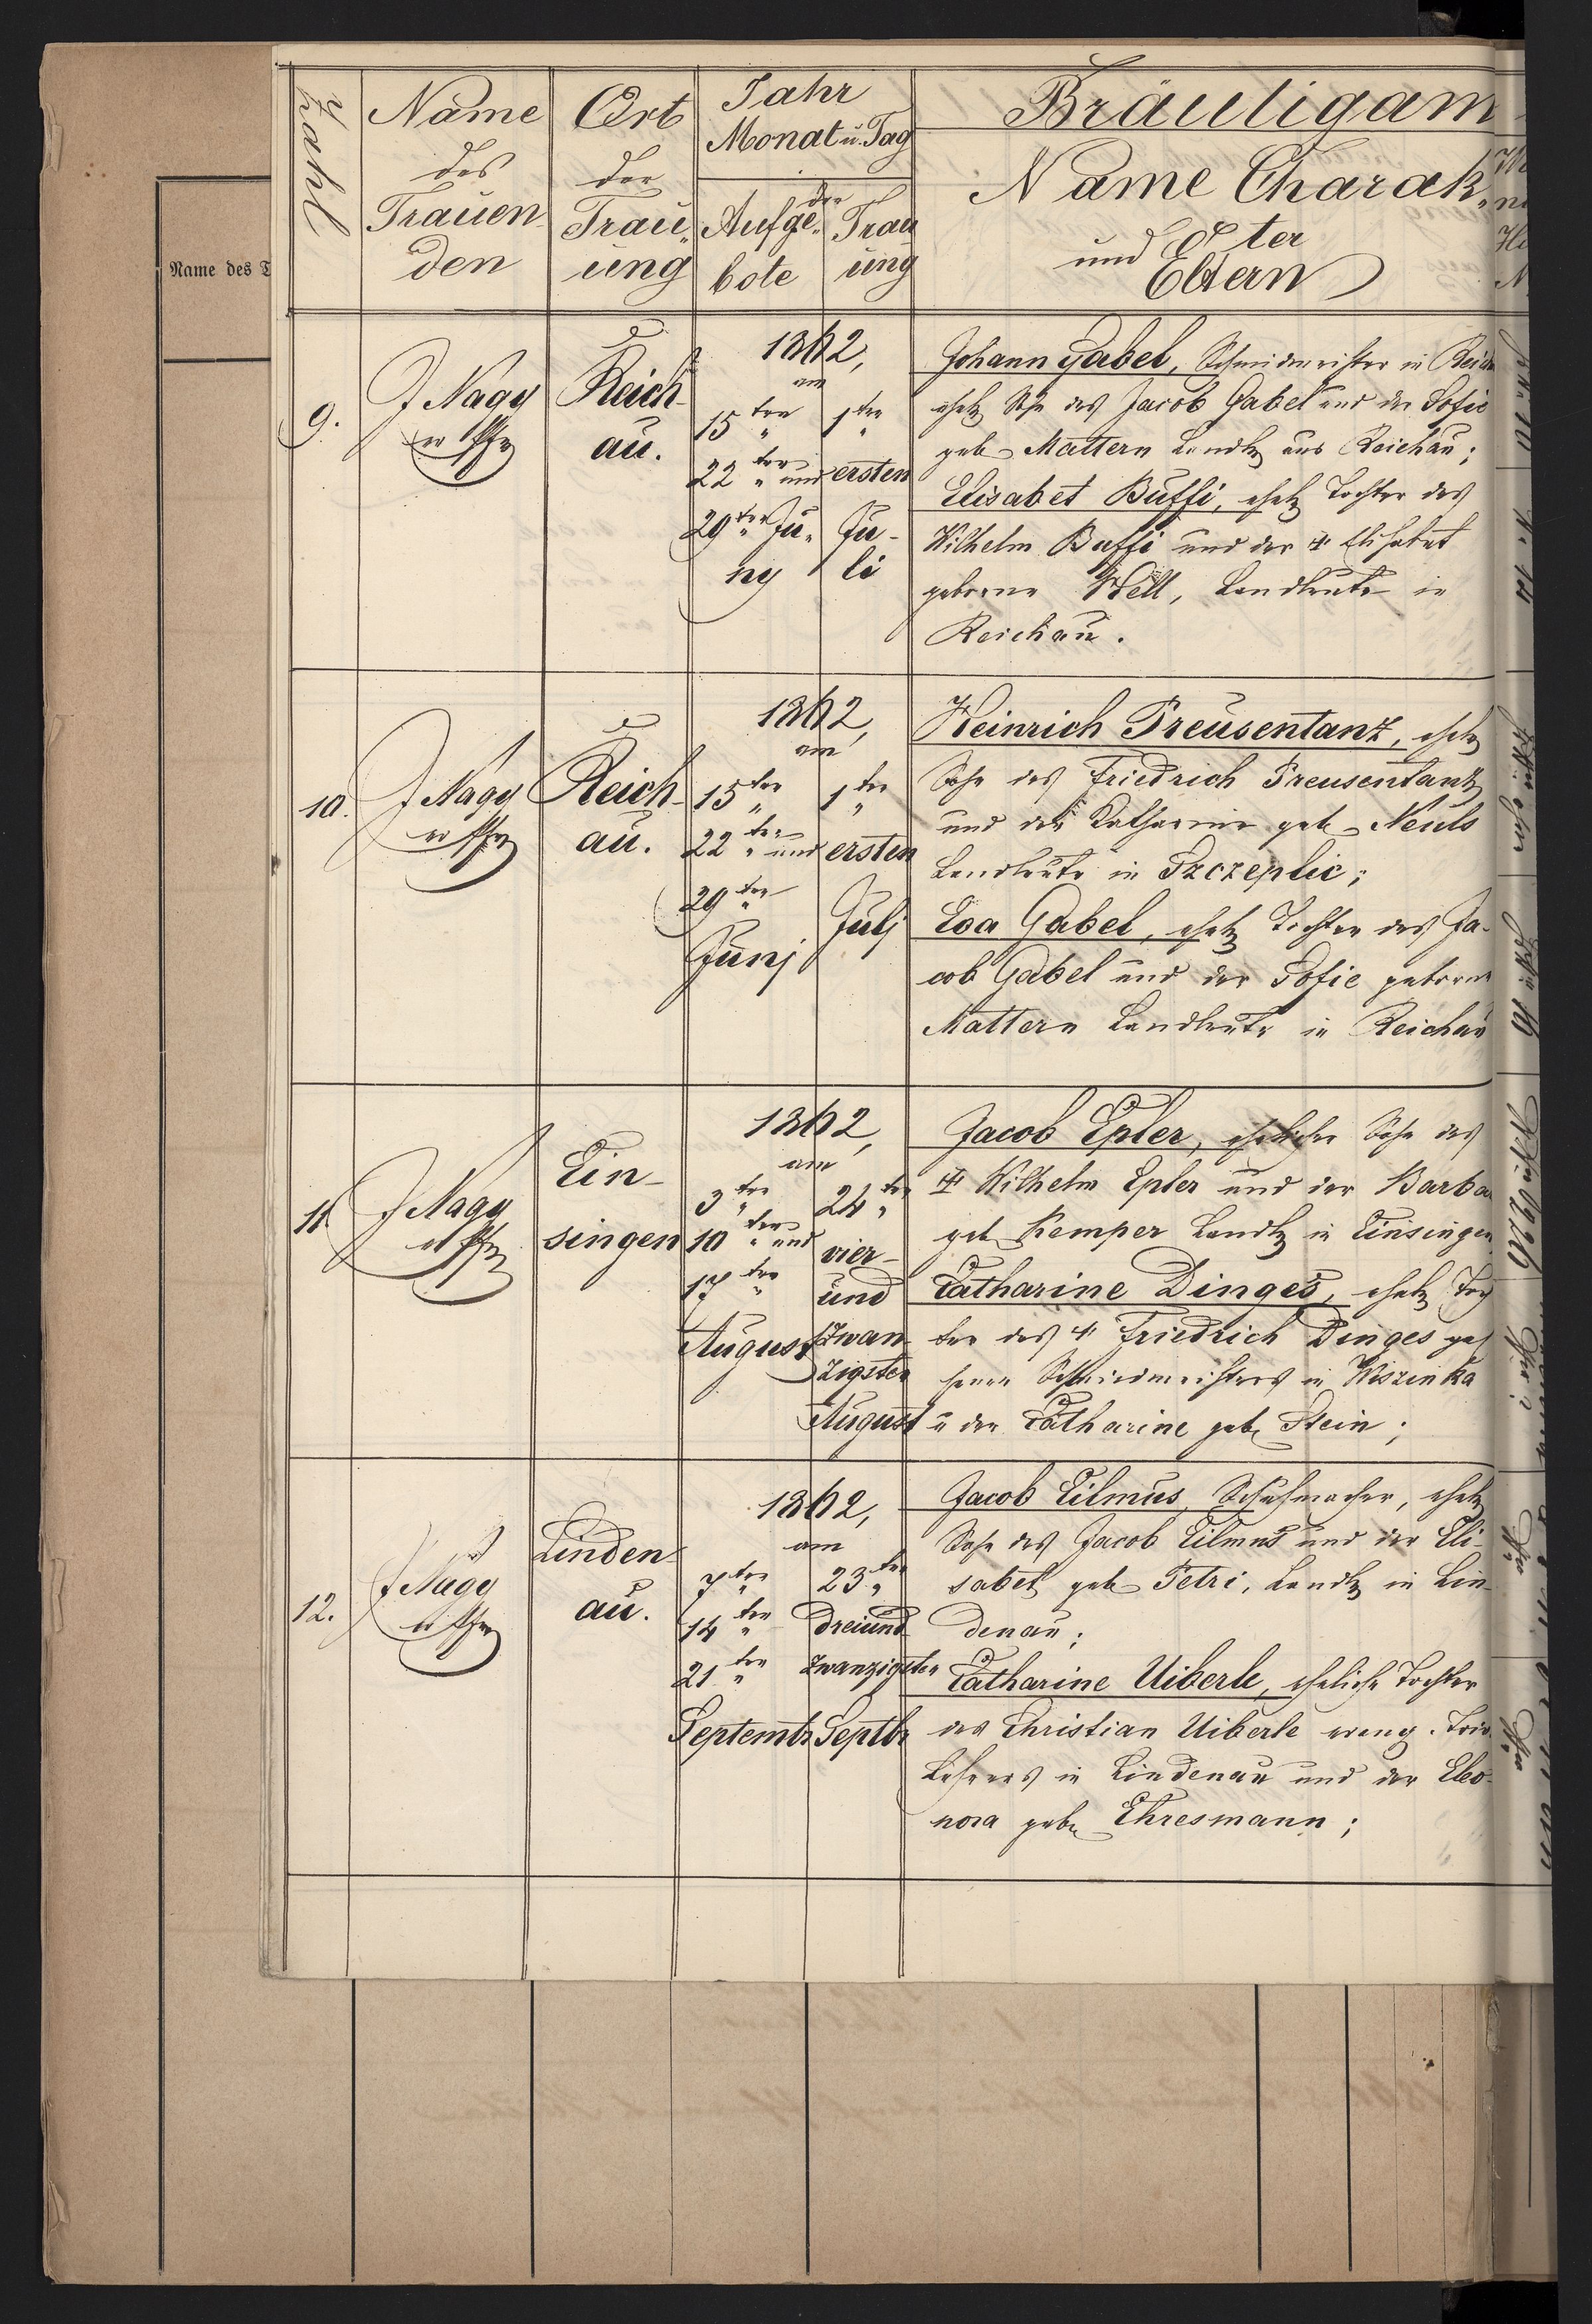 Name des T
Zahl
Name
des
Trauen-
den
Ort
der
Trau„
ung
Jahr
Monat u. Tag
der
Aufge„
bote
Trau
ung
Bräutigam
Name Charak„
ter
und
Eltern
9.
J Nagy
Reich-
au.
1862,
am
15ten
22ten und
29ten Ju„
ny
1ten
ersten
Ju-
li
Johann Gabel, Schmidmeister in Reich
ehel Sohn des Jacob Gabel und der Sofie
geb Mattern Landl aus Reichau;
Elisabet Buffi, ehel Tochter des
Wilhelm Buffi und der ‡ Elisabet
geborne Well, Landleute in
Reichau.
10.
J Nagy
Reich-
au.
1862,
am
15ten
22ten und
29ten
Junj
1ten
ersten
Julj
Heinrich Preusentanz, ehel
Sohn des Friedrich Preusentanz
und der Katharine geb Neuls
Landleute in Szczeplic;
Eva Gabel, ehel Tochter des Ja-
cob Gabel und der Sofie geborne
Mattern Landleute in Reichau
11
J Nagy
Ein-
singen
1862,
am
3ten
10ten und
17ten
August
24ten
vier-
und
zwan-
zigsten
August
Jacob Epler, ehelicher Sohn des
‡ Wilhelm Epler und der Barba
geb Kemper Landl in Einsingen
Catharine Dinges, ehel Toch
ter des ‡ Friedrich Dinges
Schmiedmeisters in Wiszenka
u der Catharine geb Stein;
12.
J Nagy
Linden-
au.
1862,
am
7ten
14ten
21ten
Septembr
23ten
dreiund-
zwanzigsten
Septbr
Jacob Eilmus, Schuhmacher, ehel
Sohn des Jacob Eilmus und der Eli-
sabet geb Petri, Landl in Lin-
denau;
Catharine Uiberle, eheliche Tochter
des Christian Uiberle evang.
Lehrers in Lindenau und der Eleo-
nora geb Ehresmann;